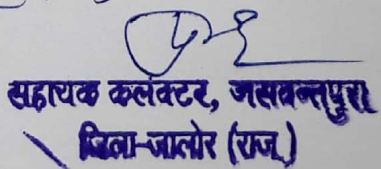 सहायक कलेक्टर, जसवन्तपुरा
जिला-जालोर (राज.)